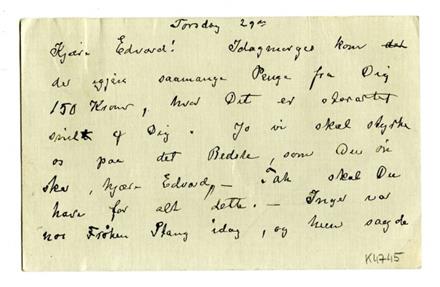 Torsdag 29de
Kjære Edvard! Idagmorges kom
der igjen saamange Penge fra Dig
150 Kroner, hvor Det er storartet
snilt af Dig. Jo vi skal styrke
os paa det Bedste, som Du øn
sker, kjære Edvard, — Tak skal Du
have for alt dette. — Inger var
hos Frøken Stang idag, og hun sagde
K4745